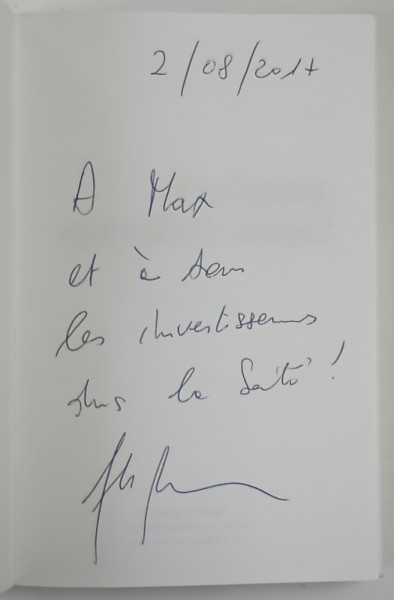 2/08/2017
A Max
et à tous
les investisseurs
dans la Santé !